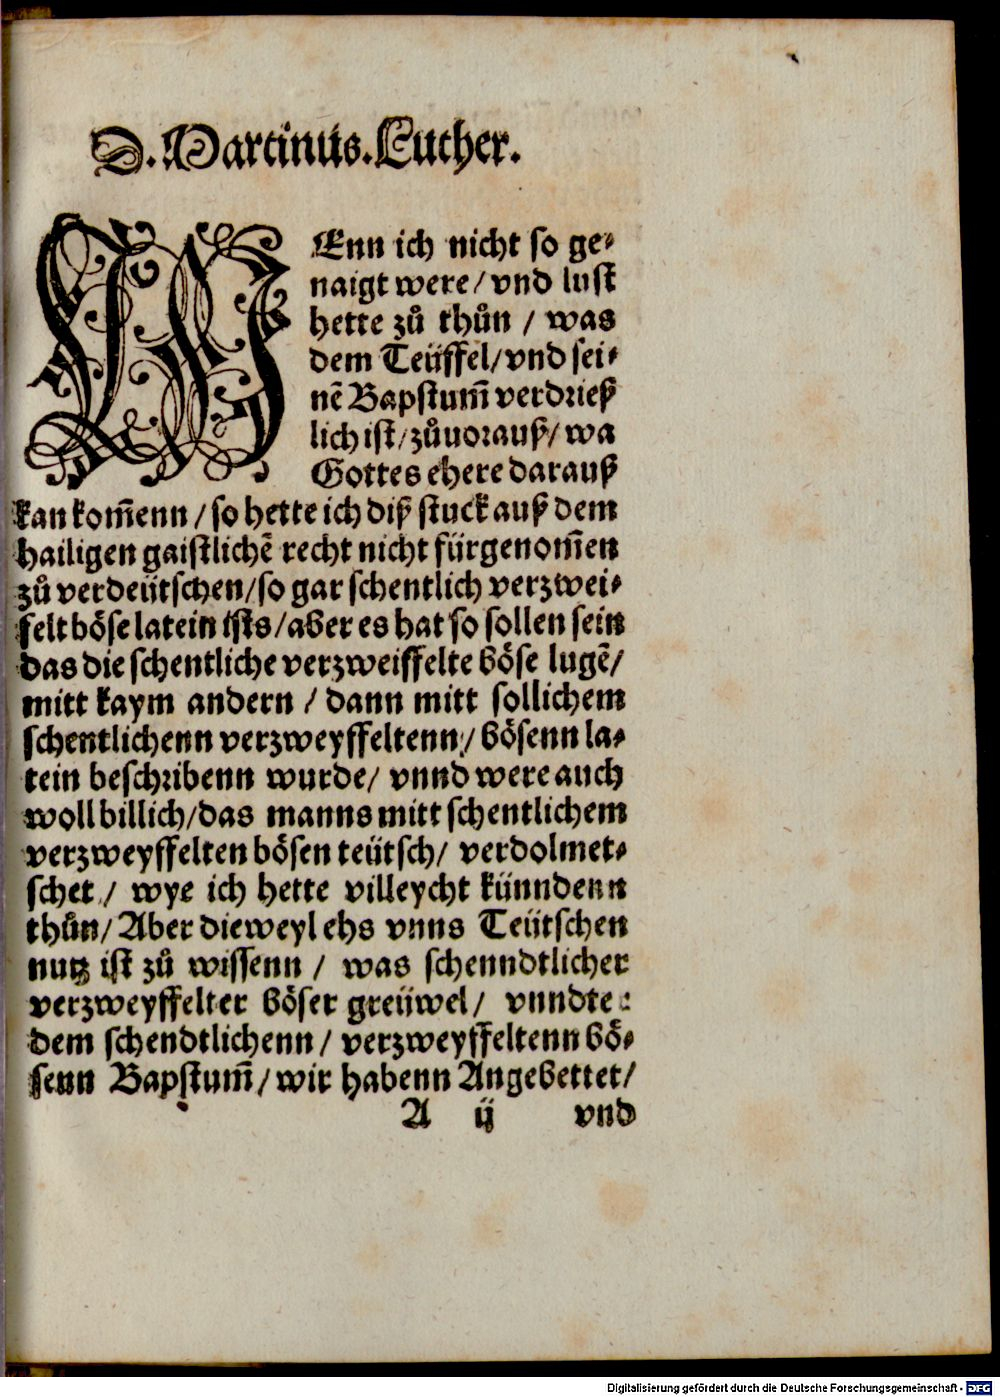 D. Martinus. Luther.
WEnn ich nicht so ge⸗
naigt were / vnd lust
hette zů thůn / was
dem Teüffel / vnd sei⸗
nẽ Bapstum̃ verdrieß
lich ist / zůuorauß / wa
Gottes ehere darauß
kan kom̃enn / so hette ich diß stuck auß dem
hailigen gaistlichẽ recht nicht fürgenom̃en
zů verdeütschen / so gar schentlich verzwei⸗
felt böse latein ists / aber es hat so sollen sein
das die schentliche verzweiffelte böse lugẽ /
mitt kaym andern / dann mitt sollichem
schentlichenn verzweyffeltenn / bösenn la⸗
tein beschribenn wurde / vnnd were auch
woll billich / das manns mitt schentlichem
verzweyffelten bösen teütsch / verdolmet⸗
schet / wye ich hette villeycht künndenn
thůn / Aber dieweyl ehs vnns Teütschen
nutz ist zů wissenn / was schenndtlicher
verzweyffelter böser greüwel / vnndte⸗
dem schendtlichenn / verzweyffeltenn bö⸗
senn Bapstum̃ / wir habenn Angebettet /
A ij vnd
Digitalisierung gefördert durch die Deutsche Forschungsgemeinschaft - DFG